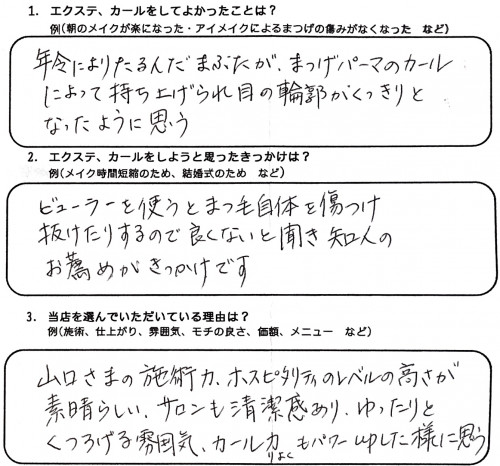 1. エクステ、カールをしてよかったことは？
例(朝のメイクが楽になった・アイメイクによるまつげの傷みがなくなった など)
年令によりたるんだまぶたが、まつげパーマのカール
によって持ち上げられ目の輪郭がくっきりと
なったように思う
2. エクステ、カールをしようと思ったきっかけは？
例(メイク時間短縮のため、結婚式のため など)
ビューラーを使うとまつ毛自体を傷つけ
抜けたりするので良くないと聞き知人の
お薦めがきっかけです
3. 当店を選んでいただいている理由は？
例(施術、仕上がり、雰囲気、モチの良さ、価額、メニュー など)
山口さまの施術力、ホスピタリティのレベルの高さが
素晴らしい、サロンも清潔感あり、ゆったりと
くつろげる雰囲気、カール力もパワーupした様に思う
りょく